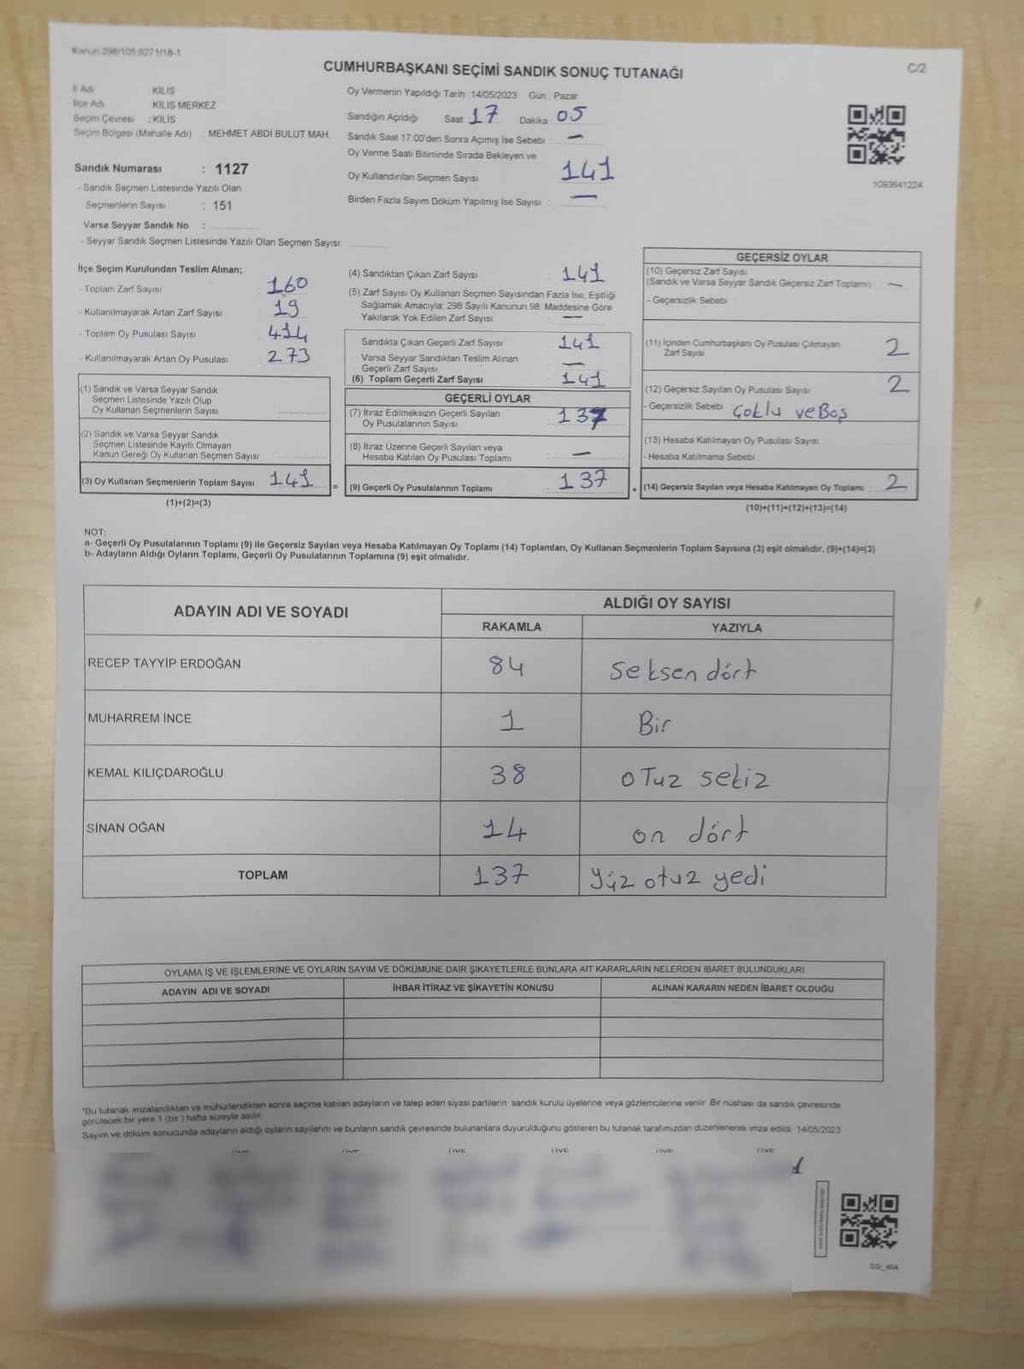 Kanun:298/105;6271/18-1
C/2
CUMHURBAŞKANI SEÇİMİ SANDIK SONUÇ TUTANAĞI
İl Adı KİLİS
İlçe Adı KİLİS MERKEZ
Seçim Çevresi : KİLİS
Seçim Bölgesi (Mahalle Adı) : MEHMET ABDİ BULUT MAH.
Sandık Numarası : 1127
- Sandık Seçmen Listesinde Yazılı Olan
Seçmenlerin Sayısı : 151
Varsa Seyyar Sandık No :
- Seyyar Sandık Seçmen Listesinde Yazılı Olan Seçmen Sayısı:
Oy Vermenin Yapıldığı Tarih : 14/05/2023 Gün : Pazar
Sandığın Açıldığı Saat 17 Dakika 05
Sandık Saat 17:00'den Sonra Açılmış İse Sebebi : —
Oy Verme Saati Bitiminde Sırada Bekleyen ve
Oy Kullandırılan Seçmen Sayısı 141
Birden Fazla Sayım Döküm Yapılmış İse Sayısı : —
1093641224
İlçe Seçim Kurulundan Teslim Alınan;
- Toplam Zarf Sayısı 160
- Kullanılmayarak Artan Zarf Sayısı 19
- Toplam Oy Pusulası Sayısı 414
- Kullanılmayarak Artan Oy Pusulası 273
(1) Sandık ve Varsa Seyyar Sandık
Seçmen Listesinde Yazılı Olup
Oy Kullanan Seçmenlerin Sayısı
(2) Sandık ve Varsa Seyyar Sandık
Seçmen Listesinde Kayıtlı Olmayan
Kanun Gereği Oy Kullanan Seçmen Sayısı
(3) Oy Kullanan Seçmenlerin Toplam Sayısı 141
(1)+(2)=(3)
(4) Sandıktan Çıkan Zarf Sayısı 141
(5) Zarf Sayısı Oy Kullanan Seçmen Sayısından Fazla İse, Eşitliği
Sağlamak Amacıyla; 298 Sayılı Kanunun 98. Maddesine Göre
Yakılarak Yok Edilen Zarf Sayısı —
Sandıkta Çıkan Geçerli Zarf Sayısı 141
Varsa Seyyar Sandıktan Teslim Alınan
Geçerli Zarf Sayısı —
(6) Toplam Geçerli Zarf Sayısı 141
GEÇERLİ OYLAR
(7) İtiraz Edilmeksizin Geçerli Sayılan
Oy Pusulalarının Sayısı : 137
(8) İtiraz Üzerine Geçerli Sayılan veya
Hesaba Katılan Oy Pusulası Toplamı : —
= (9) Geçerli Oy Pusulalarının Toplamı : 137
GEÇERSİZ OYLAR
(10) Geçersiz Zarf Sayısı
(Sandık ve Varsa Seyyar Sandık Geçersiz Zarf Toplamı) —
- Geçersizlik Sebebi
(11) İçinden Cumhurbaşkanı Oy Pusulası Çıkmayan
Zarf Sayısı 2
(12) Geçersiz Sayılan Oy Pusulası Sayısı 2
- Geçersizlik Sebebi Çoklu ve Boş
(13) Hesaba Katılmayan Oy Pusulası Sayısı
- Hesaba Katılmama Sebebi
+ (14) Geçersiz Sayılan veya Hesaba Katılmayan Oy Toplamı 2
(10)+(11)+(12)+(13)=(14)
NOT:
a- Geçerli Oy Pusulalarının Toplamı (9) ile Geçersiz Sayılan veya Hesaba Katılmayan Oy Toplamı (14) Toplamları, Oy Kullanan Seçmenlerin Toplam Sayısına (3) eşit olmalıdır. (9)+(14)=(3)
b- Adayların Aldığı Oyların Toplamı, Geçerli Oy Pusulalarının Toplamına (9) eşit olmalıdır.
ADAYIN ADI VE SOYADI ALDIĞI OY SAYISI
RAKAMLA YAZIYLA
RECEP TAYYİP ERDOĞAN 84 seksen dört
MUHARREM İNCE 1 Bir
KEMAL KILIÇDAROĞLU 38 oTuz sekiz
SİNAN OĞAN 14 on dört
TOPLAM 137 yüz otuz yedi
OYLAMA İŞ VE İŞLEMLERİNE VE OYLARIN SAYIM VE DÖKÜMÜNE DAİR ŞİKAYETLERLE BUNLARA AİT KARARLARIN NELERDEN İBARET BULUNDUKLARI
ADAYIN ADI VE SOYADI İHBAR İTİRAZ VE ŞİKAYETİN KONUSU ALINAN KARARIN NEDEN İBARET OLDUĞU
"Bu tutanak imzalandıktan ve mühürlendikten sonra seçime katılan adayların ve talep eden siyasi partilerin sandık kurulu üyelerine veya gözlemcilerine verilir. Bir nüshası da sandık çevresinde
görülecek bir yere 1 (bir) hafta süreyle asılır.
Sayım ve döküm sonucunda adayların aldığı oyların sayılarını ve bunların sandık çevresinde bulunanlara duyurulduğunu gösteren bu tutanak tarafımızdan düzenlenerek imza edildi. 14/05/2023